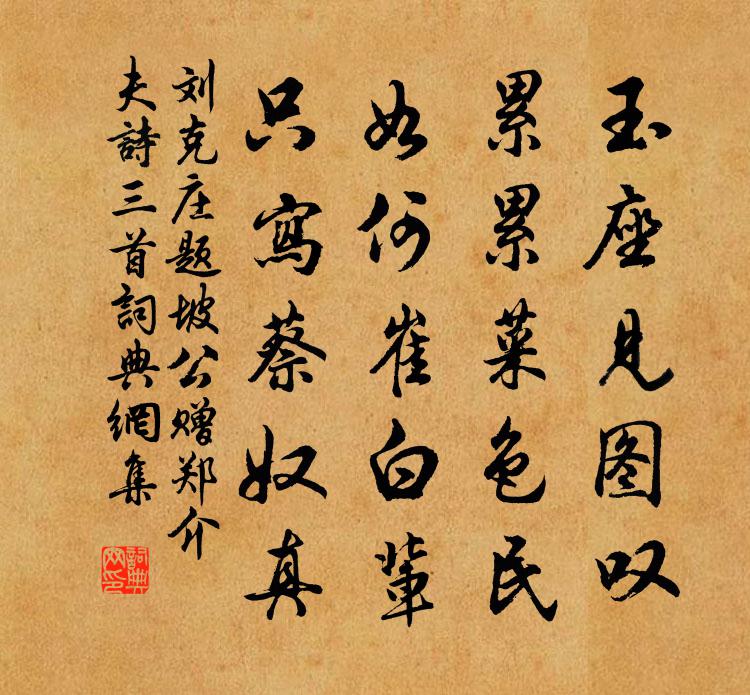 玉座见图叹
累累菜色民
如何崔白辈
只寫蔡奴真
刘克庄题坡公赠郑介
夫詩三首詞典網集
詞典
网印